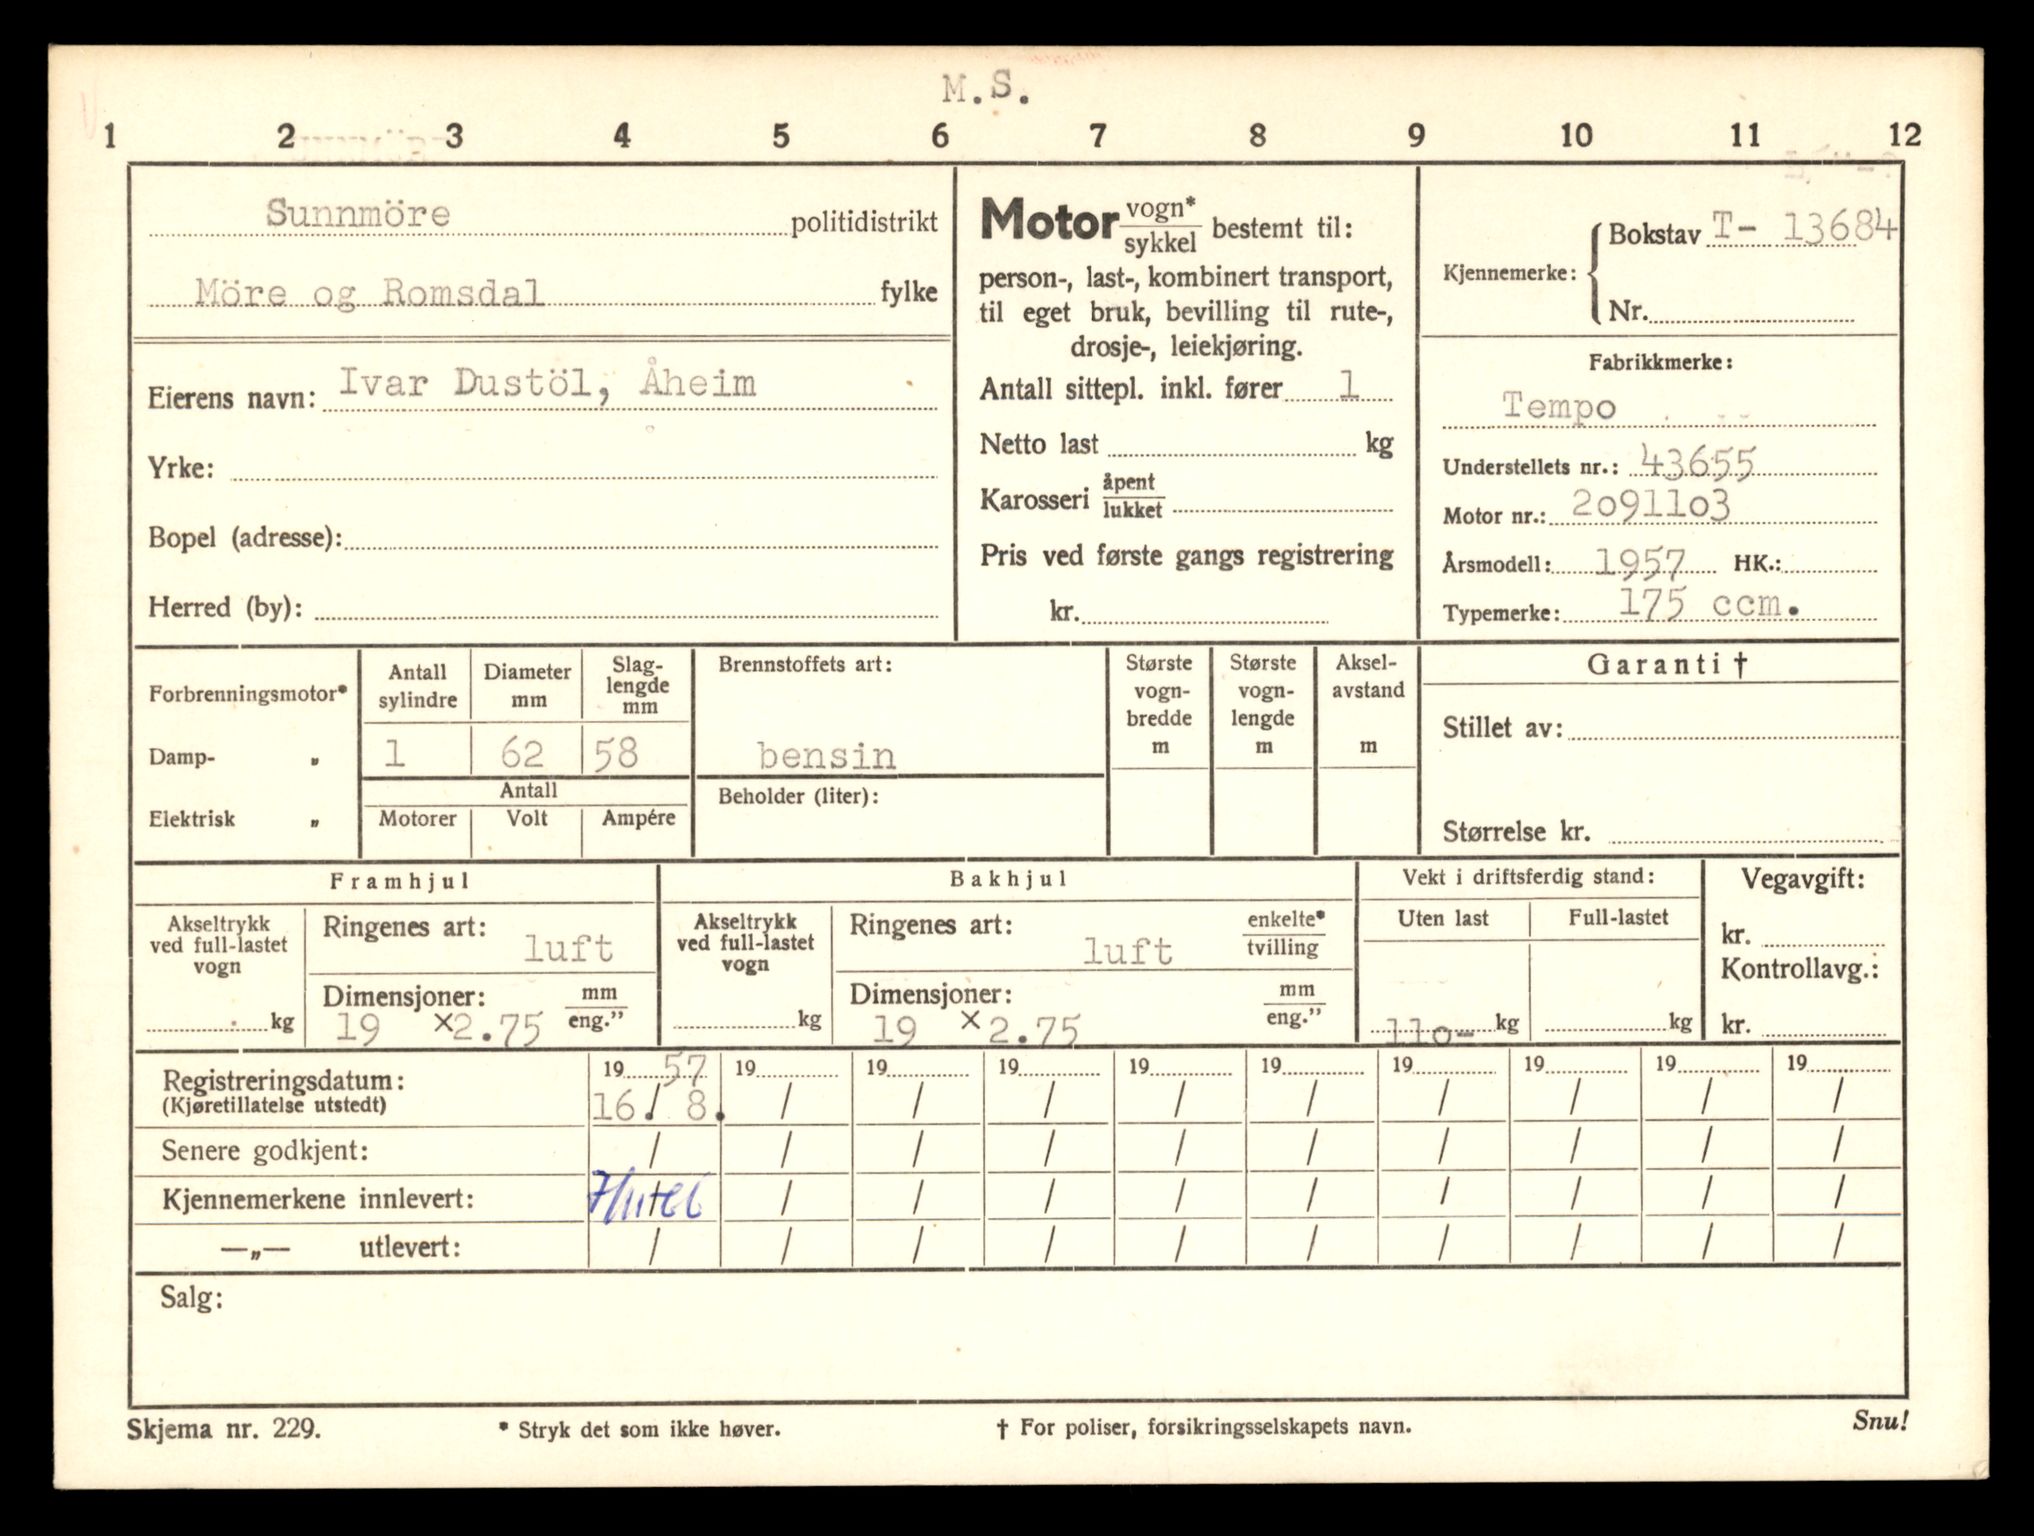 M.S.
1 2 3 4 5 6 7 8 9 10 11 12
Sunnmöre politidistrikt
Möre og Romsdal fylke
Eierens navn: Ivar Dustöl, Åheim
Yrke:
Bopel (adresse):
Herred (by):
Motor vogn* / sykkel bestemt til:
person-, last-, kombinert transport,
til eget bruk, bevilling til rute-,
drosje-, leiekjøring.
Antall sittepl. inkl. fører 1
Netto last kg
Karosseri åpent / lukket
Pris ved første gangs registrering
kr.
Kjennemerke: Bokstav T- 13684
Nr.
Fabrikkmerke:
Tempo
Understellets nr.: 43655
Motor nr.: 2o911o3
Årsmodell: 1957 HK.:
Typemerke: 175 ccm.
Forbrenningsmotor*
Damp- „
Elektrisk „
Antall sylindre
Diameter mm
Slag-lengde mm
1 62 58
Antall
Motorer Volt Ampére
Brennstoffets art:
bensin
Beholder (liter):
Største vogn-bredde m
Største vogn-lengde m
Aksel-avstand m
Garanti †
Stillet av:
Størrelse kr.
Framhjul
Akseltrykk ved full-lastet vogn
kg
Ringenes art: luft
Dimensjoner: mm / eng.”
19 x2.75
Bakhjul
Akseltrykk ved full-lastet vogn
kg
Ringenes art: luft enkelte* / tvilling
Dimensjoner: mm / eng.”
19 x2.75
Vekt i driftsferdig stand:
Uten last Full-lastet
11o- kg kg
Vegavgift:
kr.
Kontrollavg.:
kr.
Registreringsdatum: 19 57 19 19 19 19 19 19 19 19 19
(Kjøretillatelse utstedt) 16./ 8. / / / / / / / / /
Senere godkjent: / / / / / / / / / /
Kjennemerkene innlevert: / / / / / / / / / /
—„— utlevert: / / / / / / / / / /
Salg:
Skjema nr. 229. * Stryk det som ikke høver. † For poliser, forsikringsselskapets navn. Snu!